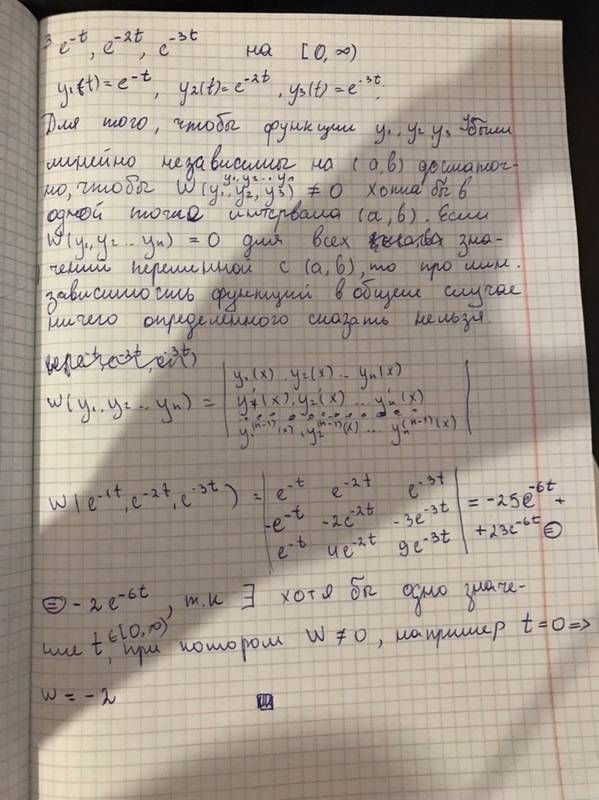 3 e^-t, e^-2t, e^-3t на [0, ∞)
y1(t)=e^-t, y2(t)=e^-2t, y3(t)=e^-3t.
Для того, чтобы функции y1, y2 y3 были
линейно независимы на (a,b) достаточ-
y1, y2 .. yn
но, чтобы W(y1.. y2, y3) ≠ 0 хотя бы в
одной точке интервала (a, b). Если
W(y1, y2 .. yn) = 0 для всех зна-
чений переменной с (a, b), то про лин.
зависимость функций в общем случае
ничего определенного сказать нельзя.
W(y1, y2 .. yn) = | y1(x) . y2(x) .. yn(x) |
| y1'(x), y2'(x) ... yn'(x) |
| y1^(n-1)(x), y2^(n-1)(x) .. yn^(n-1)(x) |
W(e^-1t, e^-2t, e^-3t) = | e^-t e^-2t e^-3t | = -25e^-6t +
| -e^-t -2e^-2t -3e^-3t |
| e^-t 4e^-2t 9e^-3t | +23e^-6t ⊜
⊜ -2e^-6t, т.к ∃ хотя бы одно значе-
ние t ∈[0,∞), при котором W ≠ 0, например t=0 =>
W = -2